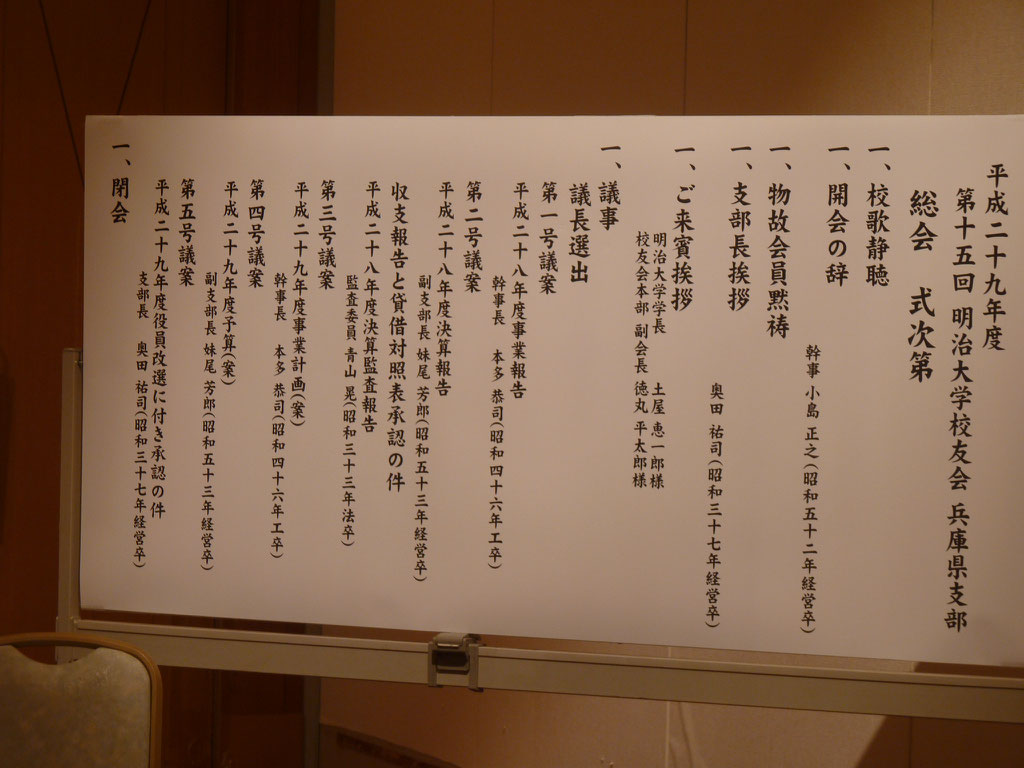 平成二十九年度
第十五回 明治大学校友会 兵庫県支部
総会 式次第
一、校歌静聴
一、開会の辞
幹事 小島 正之(昭和五十二年経営卒)
一、物故会員黙祷
一、支部長挨拶
奥田 祐司(昭和三十七年経営卒)
一、ご来賓挨拶
明治大学学長 土屋 恵一郎様
校友会本部 副会長 徳丸 平太郎様
一、議事
議長選出
第一号議案
平成二十八年度事業報告
幹事長 本多 恭司(昭和四十六年工卒)
第二号議案
平成二十八年度決算報告
副支部長 妹尾 芳郎(昭和五十三年経営卒)
収支報告と貸借対照表承認の件
平成二十八年度決算監査報告
監査委員 青山 晃(昭和三十三年法卒)
第三号議案
平成二十九年度事業計画(案)
幹事長 本多 恭司(昭和四十六年工卒)
第四号議案
平成二十九年度予算(案)
副支部長 妹尾 芳郎(昭和五十三年経営卒)
第五号議案
平成二十九年度役員改選に付き承認の件
支部長 奥田 祐司(昭和三十七年経営卒)
一、閉会